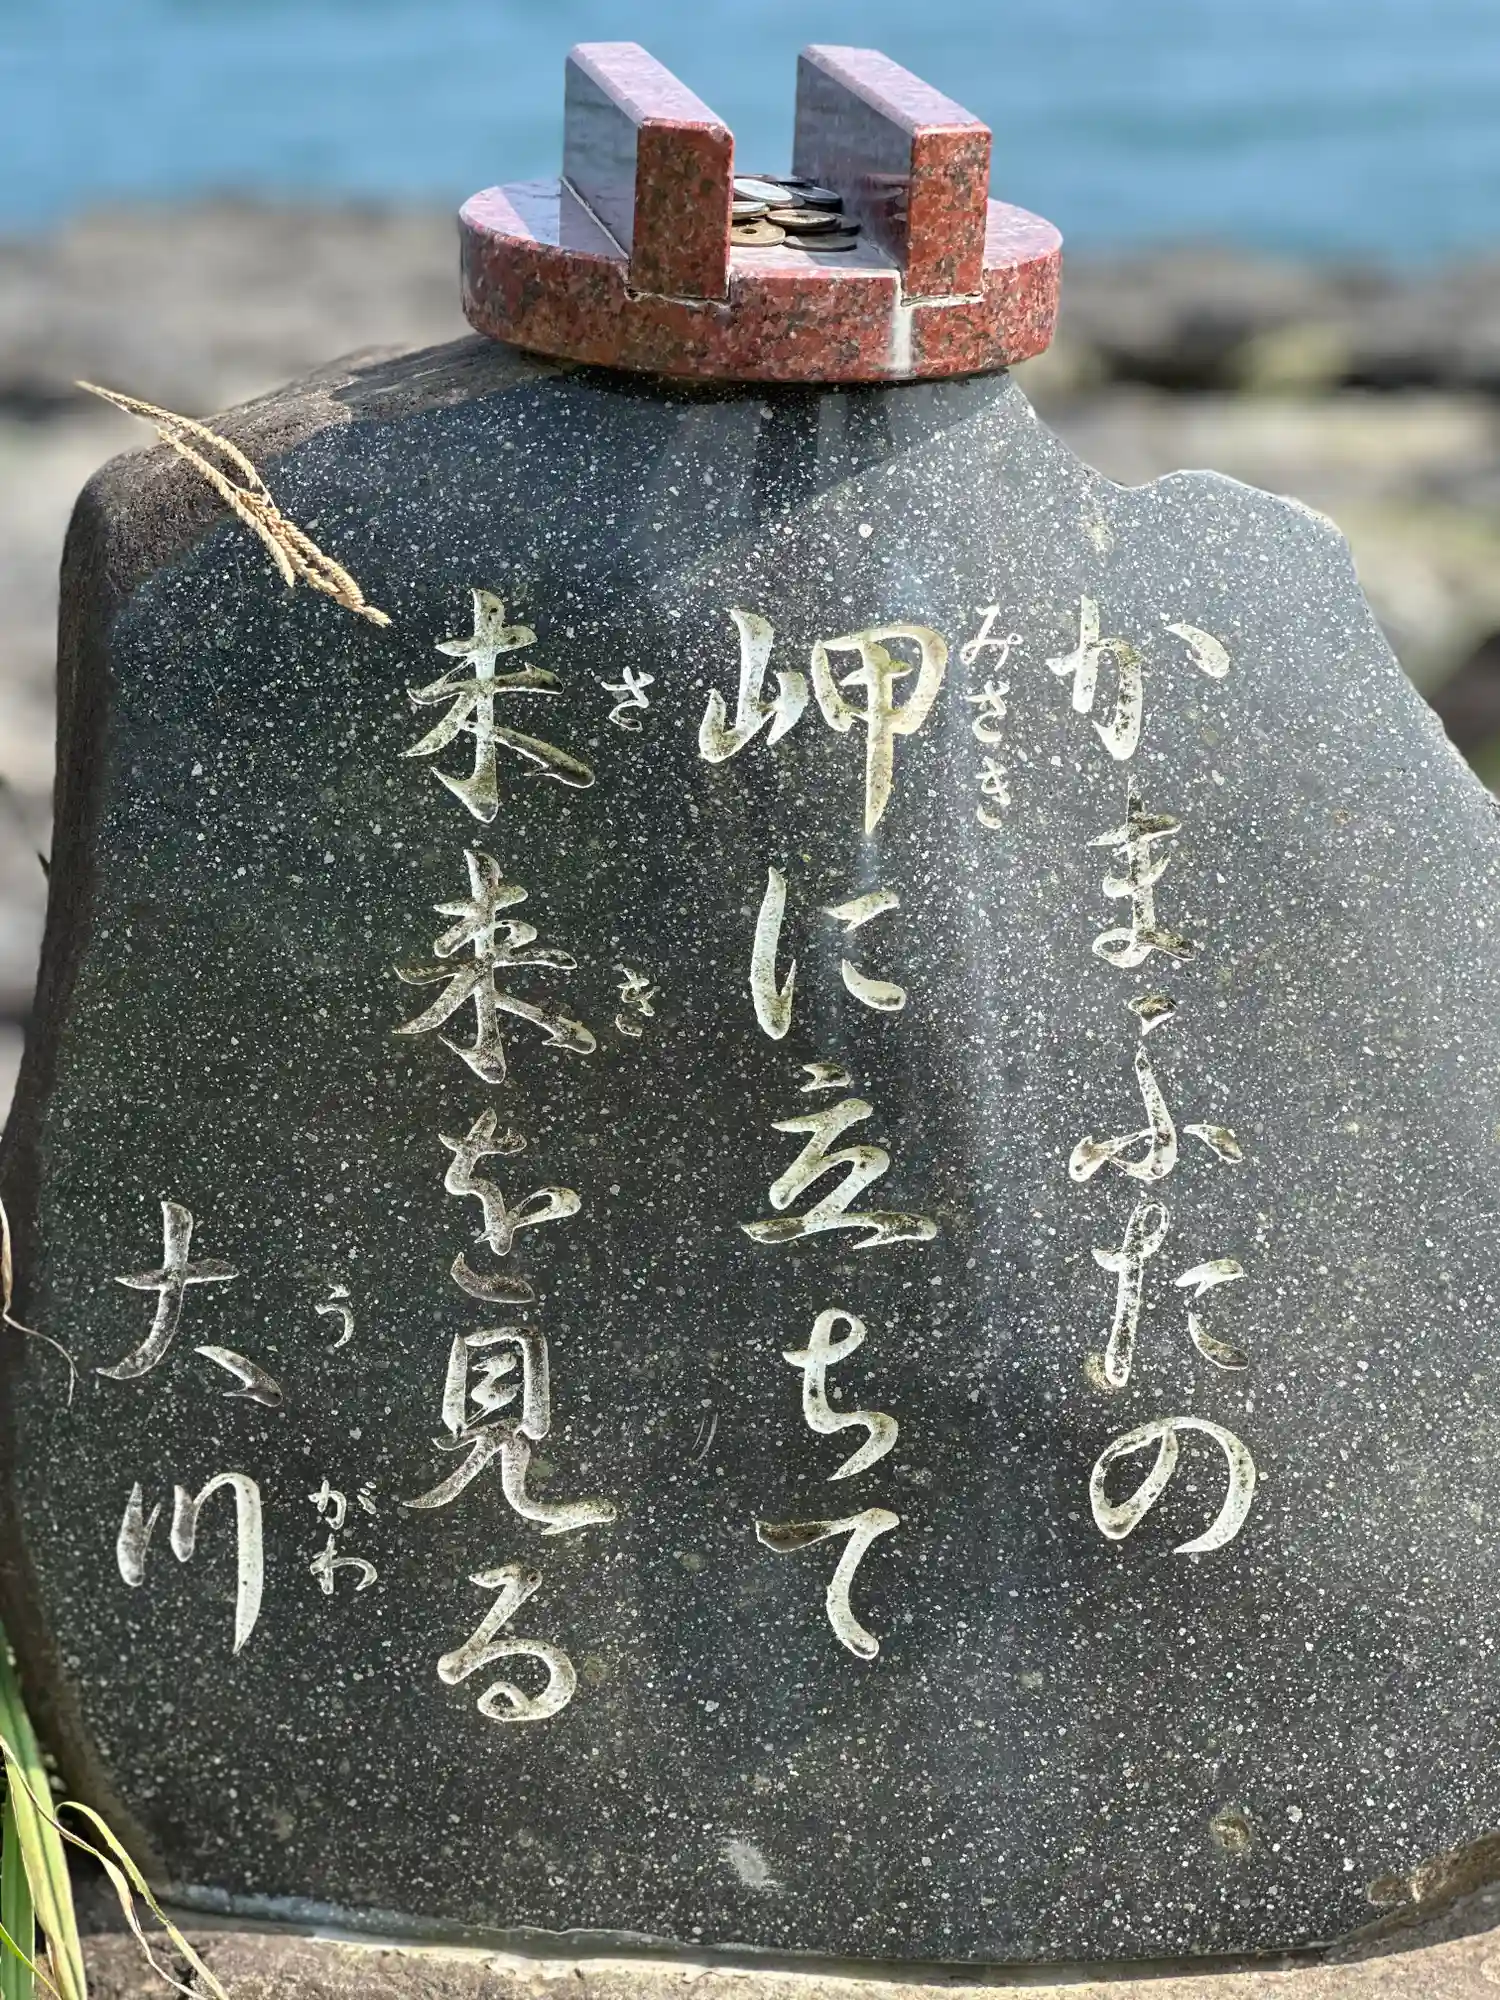 かまふたの
みさき
岬に立ちて
さき
未来を見る
うがわ
大川